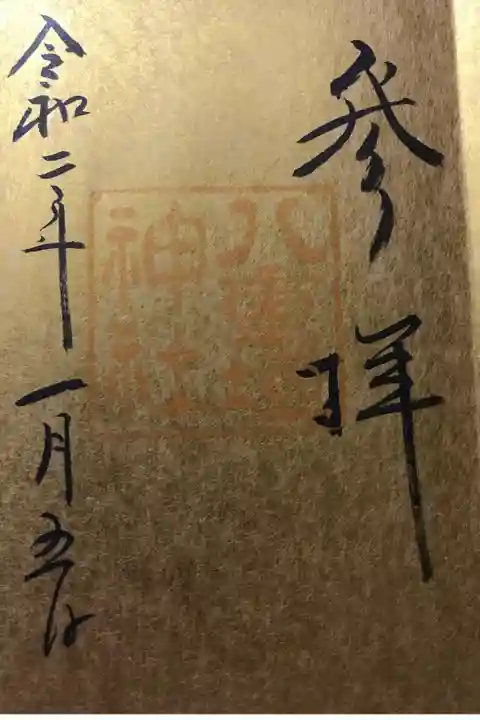 参拝
八重垣
神社
令和二年一月五日